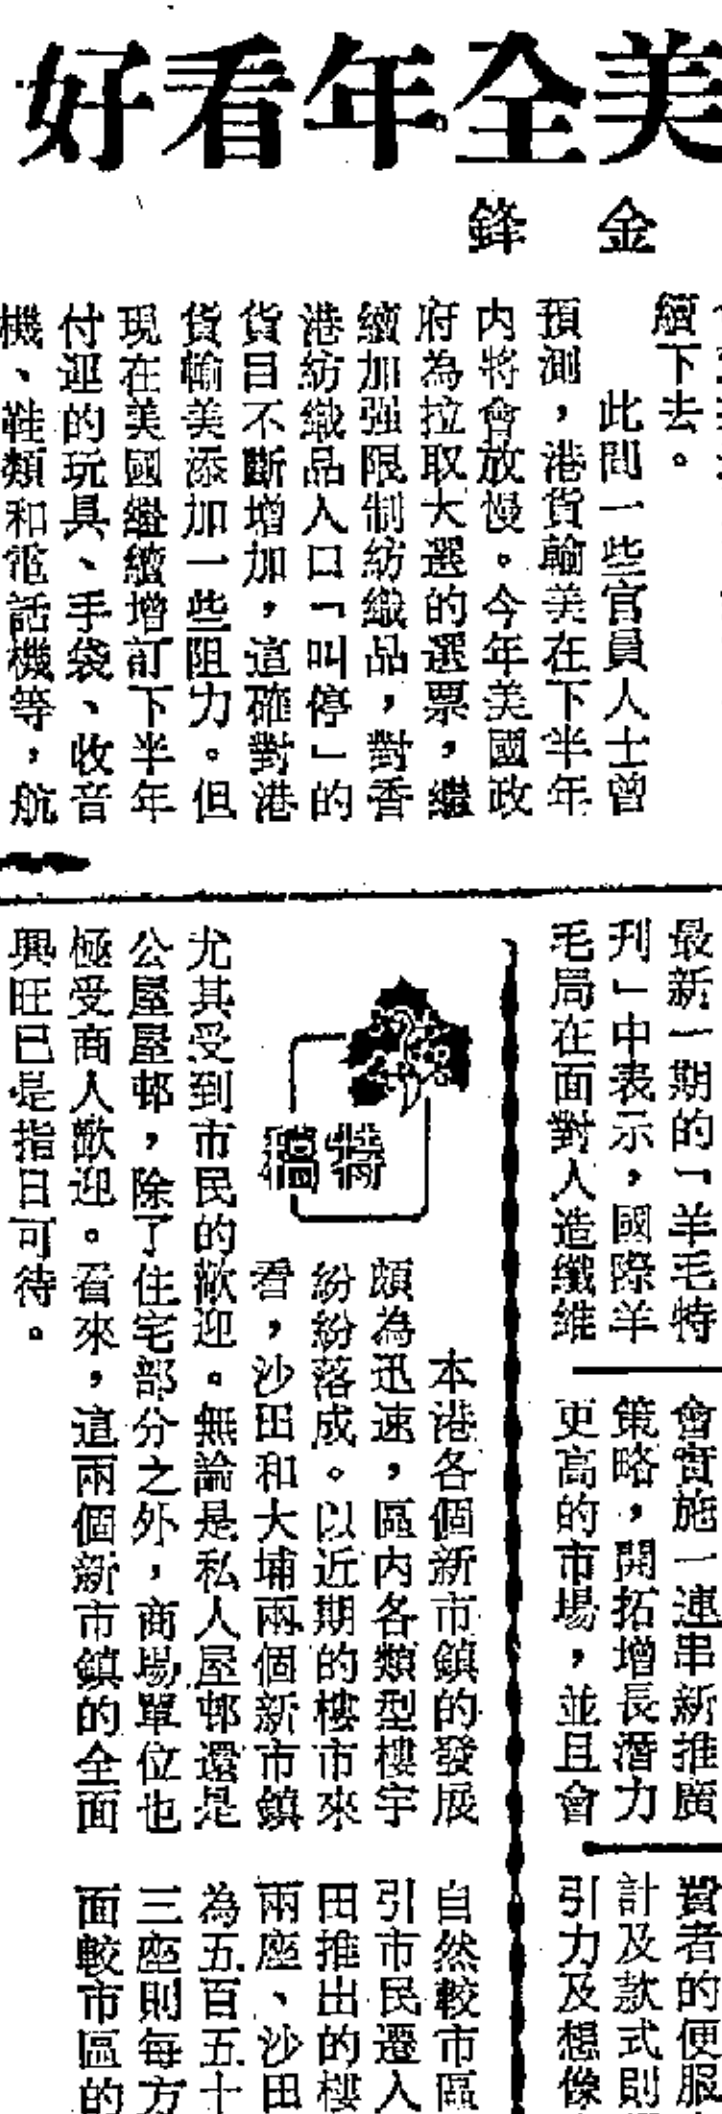 美全年看好
金鋒
續下去。
此間一些官員人士曾
預測，港貨輸美在下半年
内將會放慢。今年美國政
府為拉取大選的選票，繼
續加强限制紡織品，對香
港紡織品入口「叫停」的
貨目不斷增加，這確對港
貨輸美添加一些阻力。但
現在美國繼續增訂下半年
付運的玩具、手袋、收音
機、鞋類和電話機等，航
最新一期的「羊毛特
刋」中表示，國際羊
毛局在面對人造纖維
會實施一連串新推廣
策略，開拓增長潛力
更高的市場，並且會
者的便服
計及款式則
引力及想像
特稿
本港各個新市鎮的發展
頗為迅速，區内各類型樓宇
紛紛落成。以近期的樓市來
看，沙田和大埔兩個新市鎮
尤其受到市民的歡迎。無論是私人屋邨還是
公屋屋邨，除了住宅部分之外，商場單位也
極受商人歡迎。看來，這兩個新市鎮的全面
興旺已是指日可待。
自然較市區
引市民遷入
田推出的樓
兩座、沙田
為五百五十
三座則每方
面較市區的